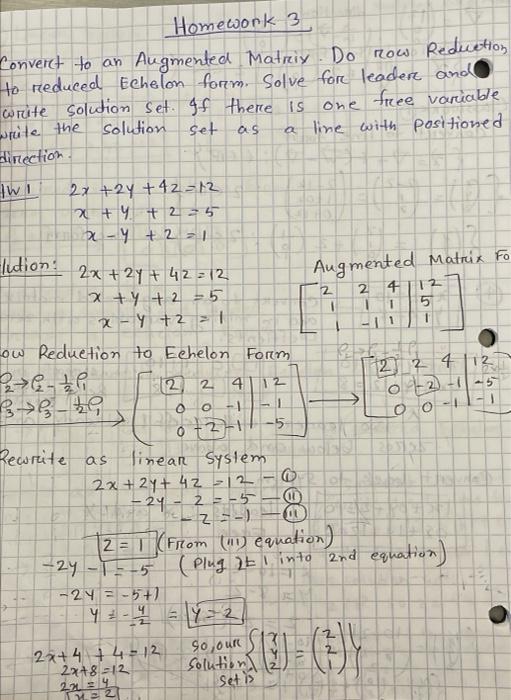 Homework 3
Convert to an Augmented Matrix. Do row Reduction
to reduced Echelon form. Solve for leader and
write solution set. If there is one free variable
write the solution set as a line with positioned
direction.
HW1: 2x + 2y + 4z = 12
x + y + z = 5
x - y + z = 1
lution: 2x + 2y + 4z = 12
x + y + z = 5
x - y + z = 1
Augmented Matrix Fo
[ 2 2 4 | 12
1 1 1 | 5
1 -1 1 | 1 ]
ow Reduction to Echelon Form
ρ2→ρ2 - ½ρ1
ρ3→ρ3 - ½ρ1
[ 2 2 4 | 12
0 0 -1 | -1
0 -2 -1 | -5 ]
→
[ 2 2 4 | 12
0 -2 -1 | -5
0 0 -1 | -1
Rewrite as linear system
2x + 2y + 4z = 12 — (I)
-2y - z = -5 — (II)
- z = -1 — (III)
z = 1 (From (III) equation)
-2y - 1 = -5 (Plug z=1 into 2nd equation)
-2y = -5+1
y = -4/-2 = y = 2
2x + 4 + 4 = 12
2x + 8 = 12
2x = 4
x = 2
so, our
solution
set is
{ (x y z) = (2 2 1) }